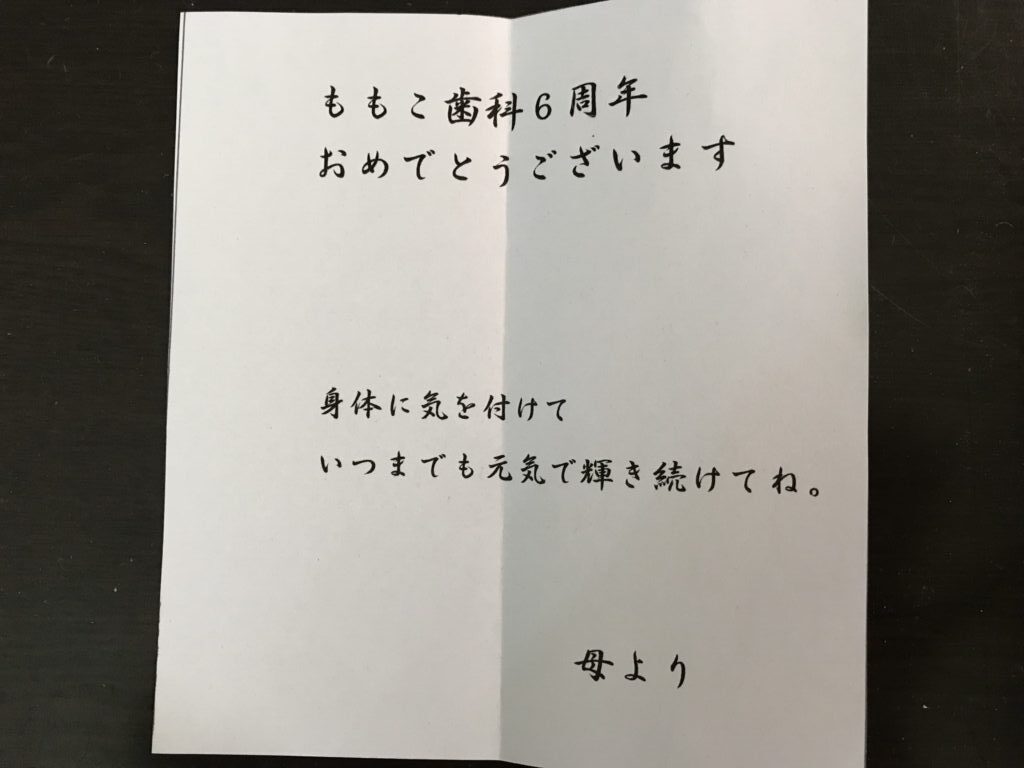 ももこ歯科6周年
おめでとうございます
身体に気を付けて
いつまでも元気で輝き続けてね。
母より